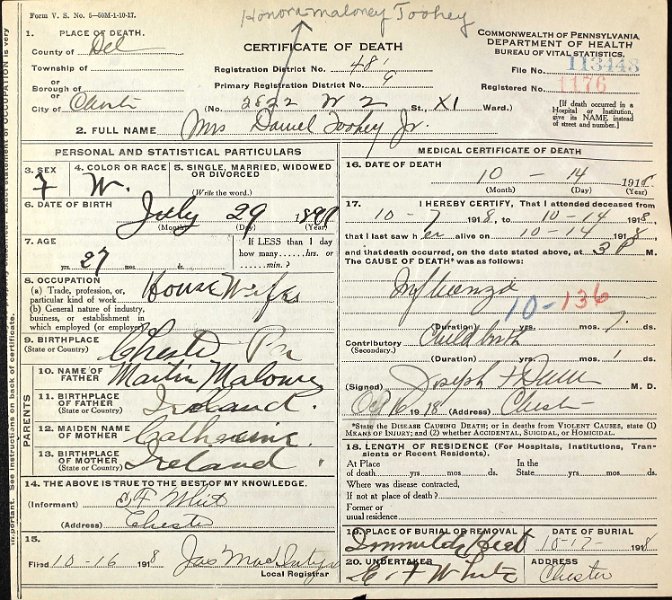 Form V. S. No. 5—50M-1-10-17.
Honora Maloney Toohey
1. PLACE OF DEATH.
County of Del
Township of
or
Borough of
or
City of Chester
CERTIFICATE OF DEATH
Registration District No. 481
Primary Registration District No. 9
(No. 2522 W 2 St., XI Ward.)
COMMONWEALTH OF PENNSYLVANIA
DEPARTMENT OF HEALTH
BUREAU OF VITAL STATISTICS.
File No. 113448
Registered No. 1176
[If death occurred in a Hospital or Institution, give its NAME instead of street and number.]
2. FULL NAME Mrs Daniel Toohey Jr.
PERSONAL AND STATISTICAL PARTICULARS
3. SEX F
4. COLOR OR RACE W.
5. SINGLE, MARRIED, WIDOWED OR DIVORCED
(Write the word.)
6. DATE OF BIRTH July 29
(Month) (Day) (Year)
7. AGE
27 yrs. mos. ds.
If LESS than 1 day how many hrs. or min.?
8. OCCUPATION House Wife
(a) Trade, profession, or, particular kind of work
(b) General nature of industry, business, or establishment in which employed (or employer)
9. BIRTHPLACE Chester Pa
(State or Country)
PARENTS
10. NAME OF FATHER Martin Maloney
11. BIRTHPLACE OF FATHER Ireland.
(State or Country)
12. MAIDEN NAME OF MOTHER Catherine
13. BIRTHPLACE OF MOTHER Ireland.
(State or Country)
14. THE ABOVE IS TRUE TO THE BEST OF MY KNOWLEDGE.
(Informant) E F White
(Address) Chester
15.
Filed 10-16 1918
Local Registrar
MEDICAL CERTIFICATE OF DEATH
16. DATE OF DEATH
10 - 14 191
(Month) (Day) (Year)
17. I HEREBY CERTIFY, That I attended deceased from
10-7 1918, to 10-14 1918,
that I last saw her alive on 10-14 1918,
and that death occurred, on the date stated above, at 3 P M.
The CAUSE OF DEATH* was as follows:
Influenza
10-136
(Duration) yrs. mos. 7 ds.
Contributory Childbirth
(Secondary.)
(Duration) yrs. mos. 1 ds.
(Signed) Joseph F Dunn M. D.
Oct 16 1918 (Address) Chester
*State the DISEASE CAUSING DEATH; or in deaths from VIOLENT CAUSES, state (1) MEANS OF INJURY; and (2) whether ACCIDENTAL, SUICIDAL, or HOMICIDAL.
18. LENGTH OF RESIDENCE (For Hospitals, Institutions, Transients or Recent Residents).
At Place of death yrs. mos. ds.
In the State yrs. mos. ds.
Where was disease contracted,
If not at place of death?
Former or
usual residence
19. PLACE OF BURIAL OR REMOVAL
DATE OF BURIAL
10-17- 1918
20. UNDERTAKER
E. F White
ADDRESS
Chester